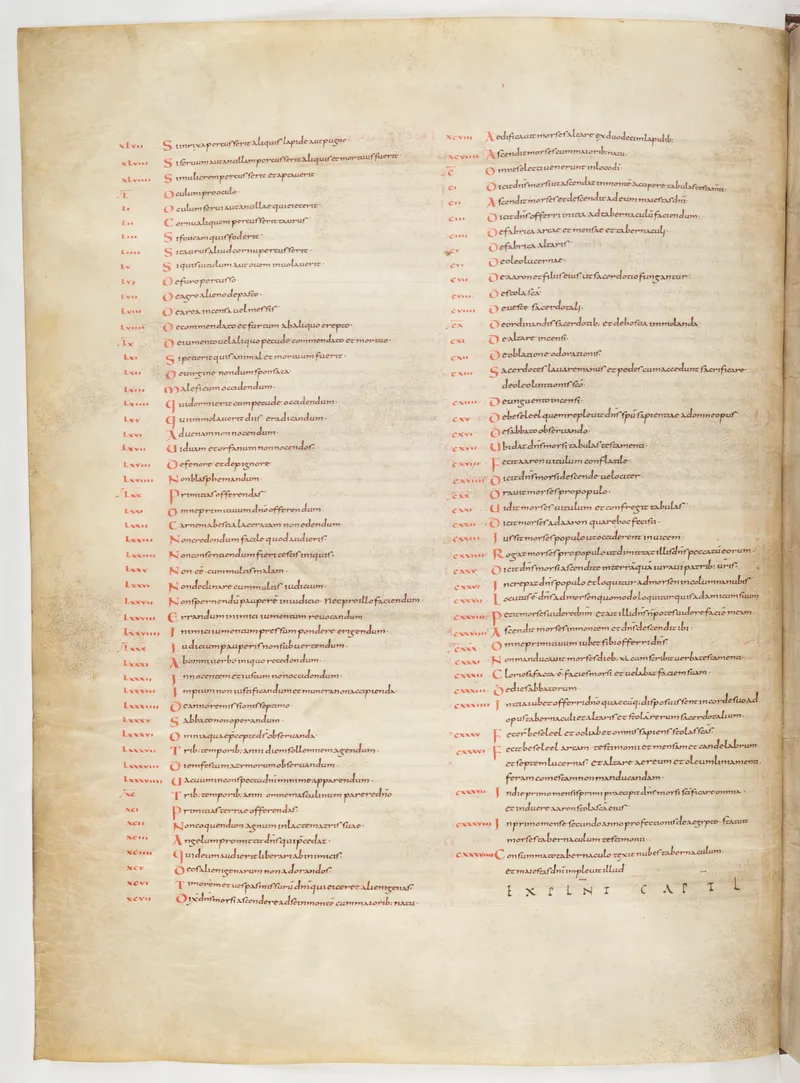 xlvii Si in rixa percusserit aliquis lapide aut pugno.
xlviii Si servum aut ancillam percusserit aliquis et mortuus fuerit
xlviiii Si mulierem percusserit et aptaverit
L Oculum pro oculo.
Li Oculum servi aut ancillae qui eiecerit.
Lii Cornu aliquem percusserit taurus
Liii Si foveam quis foderit.
Liiii Si taurus aliud cornu percusserit.
Lv Si quis vitulum aut ovem involaverit.
Lvi De fure percusso
Lvii De agro alieno depasto.
Lviii De area incensa vel messis.
Lviiii De commendato et furtum ab aliquo erepto.
Lx De iumento vel aliquo pecude commendato et mortuo.
Lxi Si petierit quis animal et mortuum fuerit.
Lxii De virgine nondum sponsata.
Lxiii Maleficum occidendum.
Lxiiii Qui dormierit cum pecude occidendum.
Lxv Qui immolaverit diis eradicandum.
Lxvi Advenam non nocendum.
Lxvii Viduam et orfanum non nocendos.
Lxviii De fenore et de pignore.
Lxviiii Non blasphemandum.
Lxx Primitias offerendas.
Lxxi Omne primitivum dno offerendum.
Lxxii Carnem a bestia laceratam non edendum.
Lxxiii Non credendum facile quod audieris.
Lxxiiii Non consentiendum fieri testes iniquis.
Lxxv Non ee cum multis in malam.
Lxxvi Non declinare cum multis iudicium.
Lxxvii Non spernendu paupere in iudicio. Nec pro illo faciendum
Lxxviii Errandum inimici iumentum revocandum.
Lxxviiii Inimici iumentum pressum pondere erigendum.
Lxxx Iudicium pauperis non subvertendum.
Lxxxi Ab omni verbo iniquo recedendum.
Lxxxii Innocentem et iustum non occidendum.
Lxxxiii Impium non iustificandum et munera non accipienda
Lxxxiiii De anno remissionis septimo.
Lxxxv Sabbato non operandum.
Lxxxvi Omnia quae pcepit ds observanda.
Lxxxvii Trib: temporib: anni diem sollemnem agendum.
Lxxxviii Diem festum azymorum observandum.
Lxxxviiii Vacuum in conspectu dni minime apparendum.
xc Trib: temporib: anni omne masculinum parere dno
xci Primitias terrae offerendas.
xcii Non coquendum agnum in lacte matris suae.
xciii Angelum promittit dns qui pcedat.
xciiii Qui deum audierit liberari ab inimicis.
xcv Deos alienigenarum non adorandos.
xcvi Timorem et vespas missuru dnm qui eiceret alienigenas.
xcvii Dixit dns morsi ascendere ad se in monte cum maiorib: natu.
xcviii Aedificavit morses altare ex duodecim lapidib:
xcviiii Ascendit morses cum maiorib: natu.
c Omnes electi venerunt in loco di
ci Dicit dns morsi ut ascendat in monte accipere tabulas testamti
cii Ascendit morses et descendit ad eum maiestas dni.
ciii Dicit dns offerri initia ad tabernaculu faciendum.
ciiii De fabrica arcae et mensae et tabernaculi.
cv De fabrica altaris
cvi De oleo lucernae.
cvii De aaron et filiis eius ut sacerdotio fungantur.
cviii De stola sca
cviiii De veste sacerdotali.
cx De ordinandis sacerdotib: et de hostia immolanda
cxi De altare incensi.
cxii De oblatione odorationis
cxiii Sacerdotes lavare manus et pedes cum accedunt sacrificare
de oleo unctionis sco.
cxiiii De unguento incensi.
cxv De beseleel quem replevit dns spu sapientiae ad omne opus
cxvi De sabbato observando.
cxvii Ubi dat dns morsi tabulas testamenti.
cxviii Fecit aaron vitulum conflatile.
cxviiii Dicit dns morsi descende velociter.
cxx Oravit morses pro populo.
cxxi Vidit morses vitulum et confregit tabulas
cxxii Dicit morses ad aaron quare hoc fecisti.
cxxiii Iussit morses populo ut occiderent invicem.
cxxiiii Rogat morses pro populo ut dimittat illis dns peccatu eorum.
cxxv Dicit dns morsi ascendite in terra qua iuravi patrib: vris.
cxxvi Increpat dns populo et loquitur ad morsen in columna nubis
cxxvii Locutus e dns ad morsen quomodo loquitur quis ad amicum suum
cxxviii Petit morses videre dnm. et ait illi dns npotes videre facie meam.
cxxviiii Ascendit morses in montem et dns descendit ibi
cxxx Omne primitivum iubet sibi offerri dns.
cxxxi Non manducavit morses dieb: xl cum scribit verba testamenti.
cxxxii Gloriosa facta e facies morsi et velabat faciem suam
cxxxiii De die sabbatorum.
cxxxiiii Initia iubet offerri dno quaecuq: disposuissent in corde suo ad
opus tabernaculi et altaris et stolarum sacerdotalium.
cxxxv Fecer beseleel et ooliab et omnis sapiens stolas scas.
cxxxvi Fecit beseleel arcam testimonii et mensam et candelabrum
et septem lucernas et altare aereum et oleum liniamenti.
feram comestam non manducandam.
cxxxvii In die primo mensis primi praecipit dns morsi scificare omnia.
et induere aaron stola sca eius
cxxxviii In primo mense secundo anno profectionis de aegypto statuit
morses tabernaculum testimonii.
cxxxviiii Consummato tabernaculo texit nubes tabernaculum.
et maiestas dni implevit illud
EXPLNT CAPTL